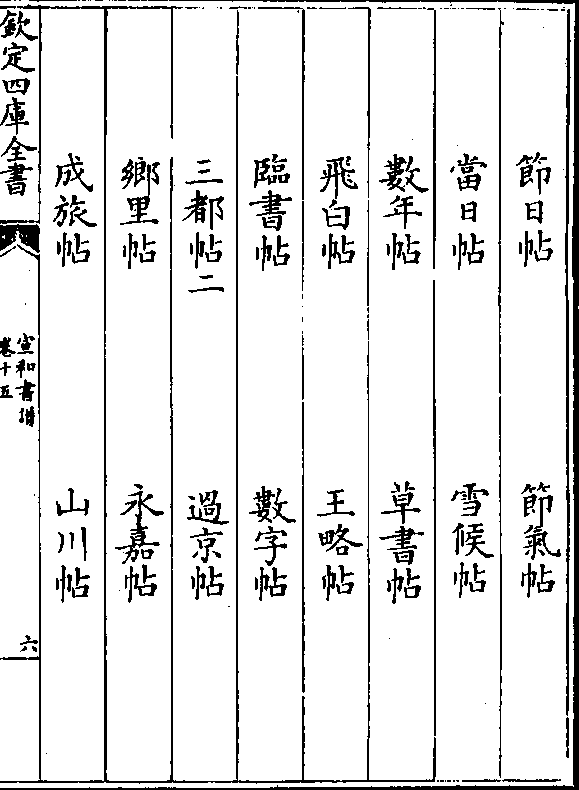 節日帖 節氣帖
當日帖 雪候帖
數年帖 草書帖
飛白帖 王略帖
臨書帖 數字帖
三都帖二 過京帖
鄉里帖 永嘉帖
成旅帖 山川帖
欽定四庫全書
宣和書譜
卷十五
六